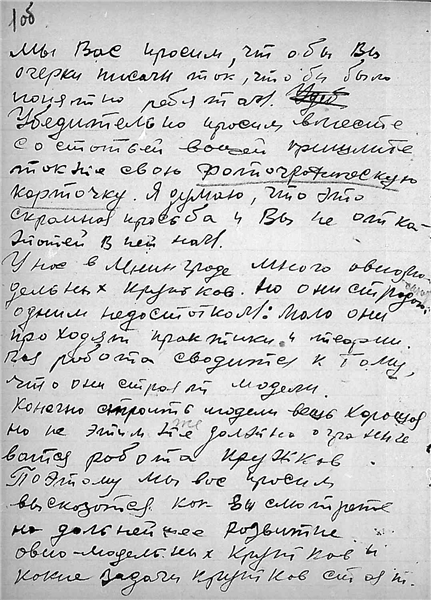 10б
Мы Вас просим, чтобы Вы
очерки писали так, чтобы было
понятно ребятам.
Убедительно просим вместе
со статьей вашей пришлите
также свою фотографическую
карточку. Я думаю, что это
скромная просьба и Вы не отка-
жете в ней нам.
У нас в Ленинграде много авиамо-
дельных кружков. Но они страдают
одним недостатком: мало они
проходят практики и теории.
работа сводится к тому,
что они строят модели.
Конечно строить модели вещь хорошая
но не этим же должна ограничи
ватся работа кружков.
Поэтому мы вас просим
высказатся как вы смотрете
на дальнейшее развитие
авио-модельных кружков и
какие задачи кружков стоят.